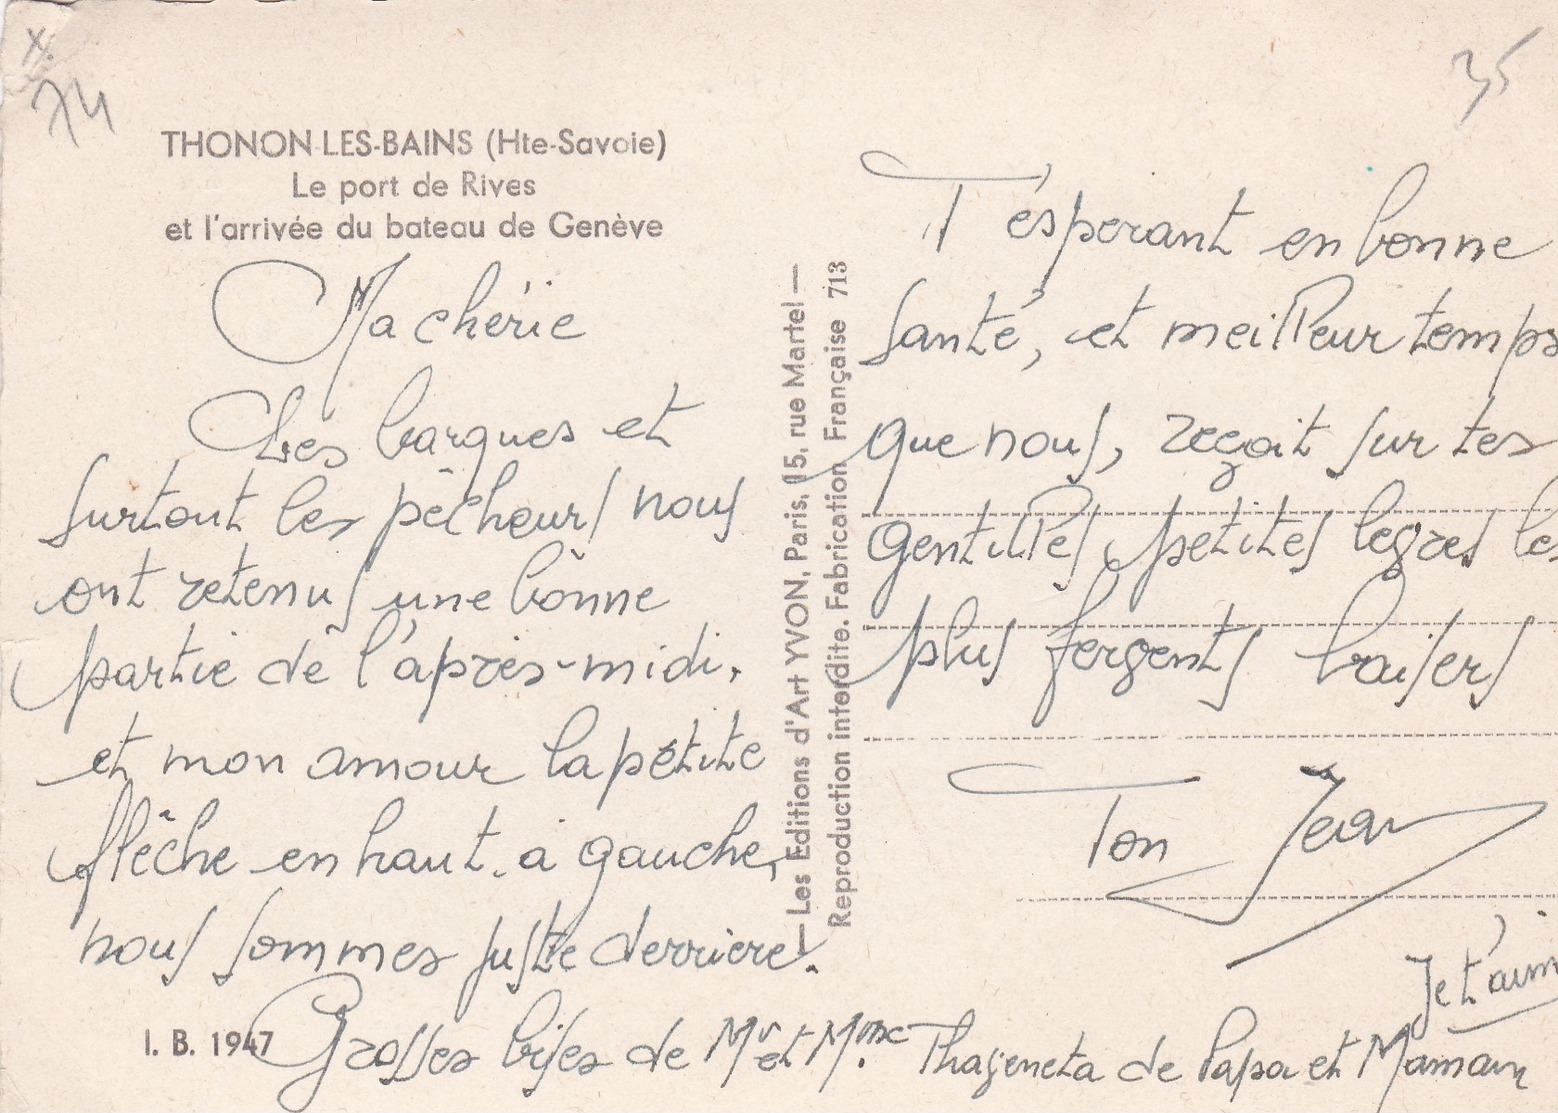 X.
74
35
THONON-LES-BAINS (Hte-Savoie)
Le port de Rives
et l'arrivée du bateau de Genève
Ma chérie
Les barques et
surtout les pêcheurs nous
ont retenus une bonne
partie de l'après-midi.
et mon amour la petite
flêche en haut à gauche,
nous sommes juste derriere.
I. B. 1947
Grosses bises de Mr et Mme de Papa et Maman
— Les Editions d'Art YVON, Paris, 15, rue Martel —
Reproduction interdite. Fabrication Française 713
T'ésperant en bonne
santé, et meilleur temps
que nous, reçoit sur tes
gentilles petites les
plus baisers
Ton Jean
Je t'aim